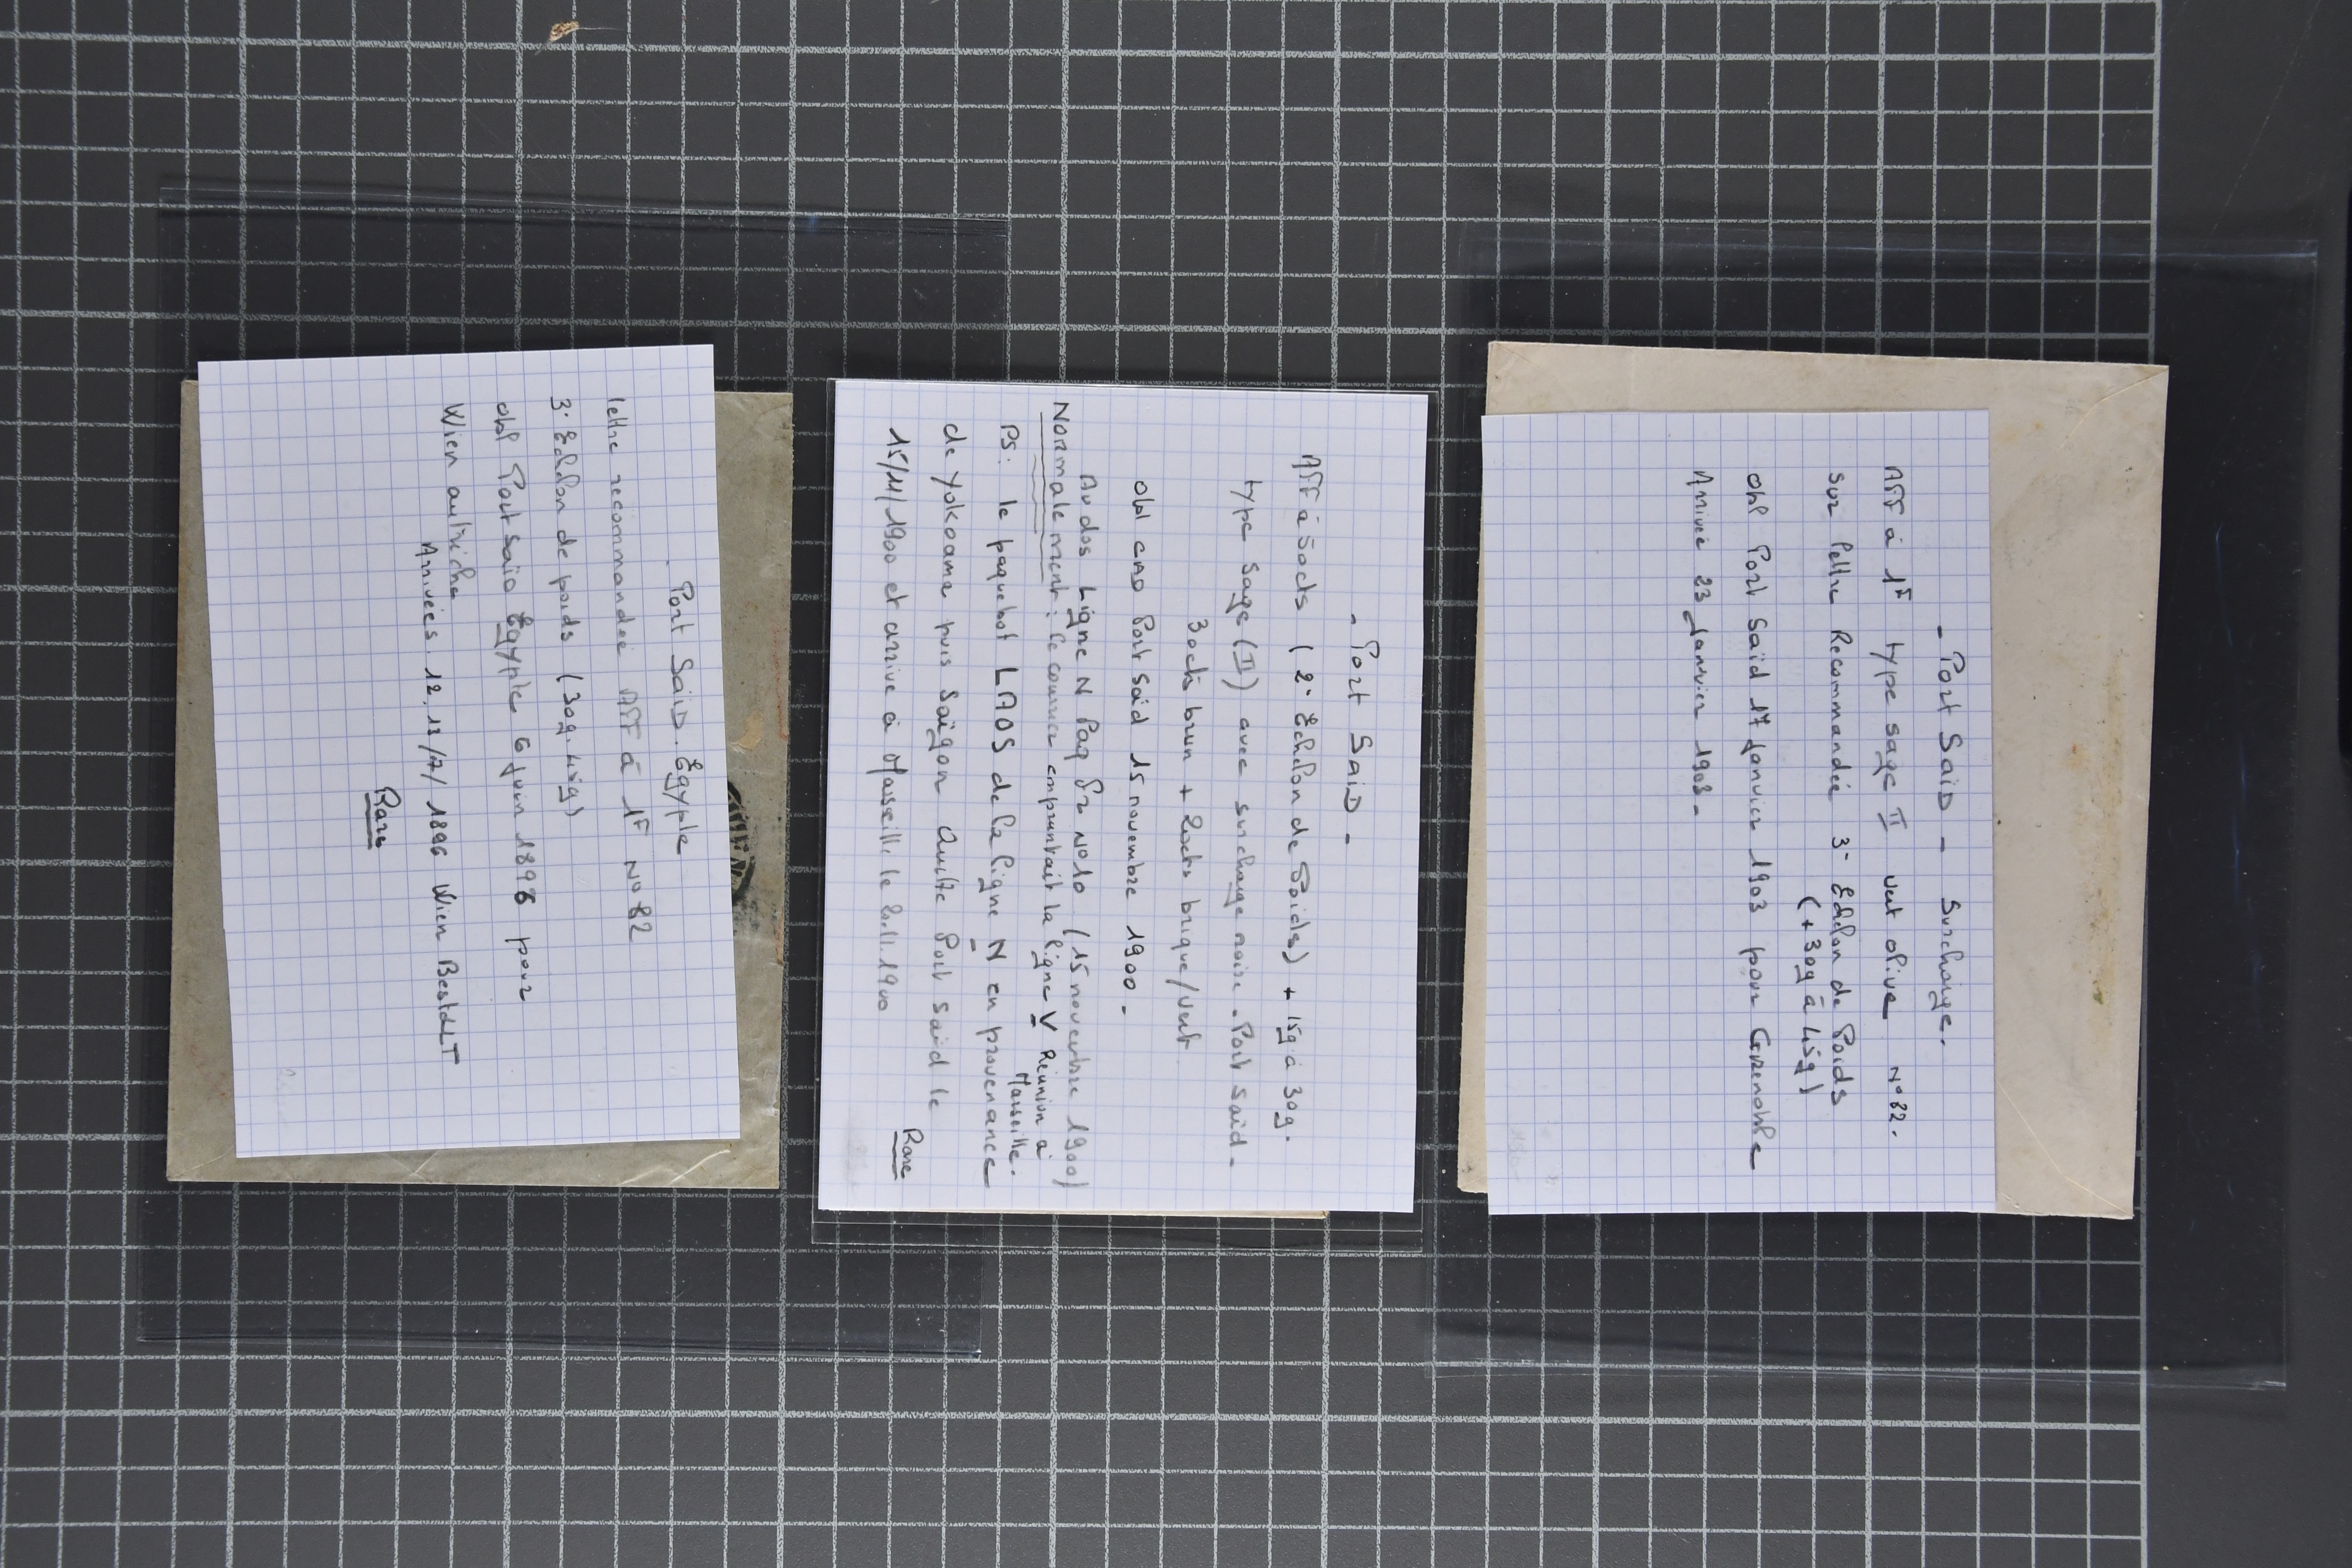 . Port SaiD. Egypte
lettre recommandée Aff à 1F N° 82
3e Echelon de poids (30g. 45g)
obl Port Saïd Egypte 6 juin 1896 pour
Wien autriche
Arrivées 12.13/7/1896 Wien BestelT
Rare
- Port SaiD -
Aff à 50cts (2e Echelon de Poids) + 15g à 30g.
type Sage (II) avec surcharge noire. Port Said -
30cts brun + 20cts brique/Vert
obl CAD Port Said 15 novembre 1900 -
Au dos Ligne N Paq Fr N°10 (15 novembre 1900)
Normalement : le courrier empruntait la ligne V Réunion à
Marseille.
PS: le paquebot LAOS de la ligne N en provenance
de Yokoama puis Saïgon quitte Port Said le
15/11/1900 et arrive à Marseille le 20.11.1900
Rare
- Port SaiD - Surcharge.
Aff à 1F type sage II vert olive N°82.
sur lettre Recommandée 3e Echelon de Poids
(+30g à 45g)
obl Port Saïd 17 Janvier 1903 pour Grenoble
Arrivée 23 Janvier 1903 -